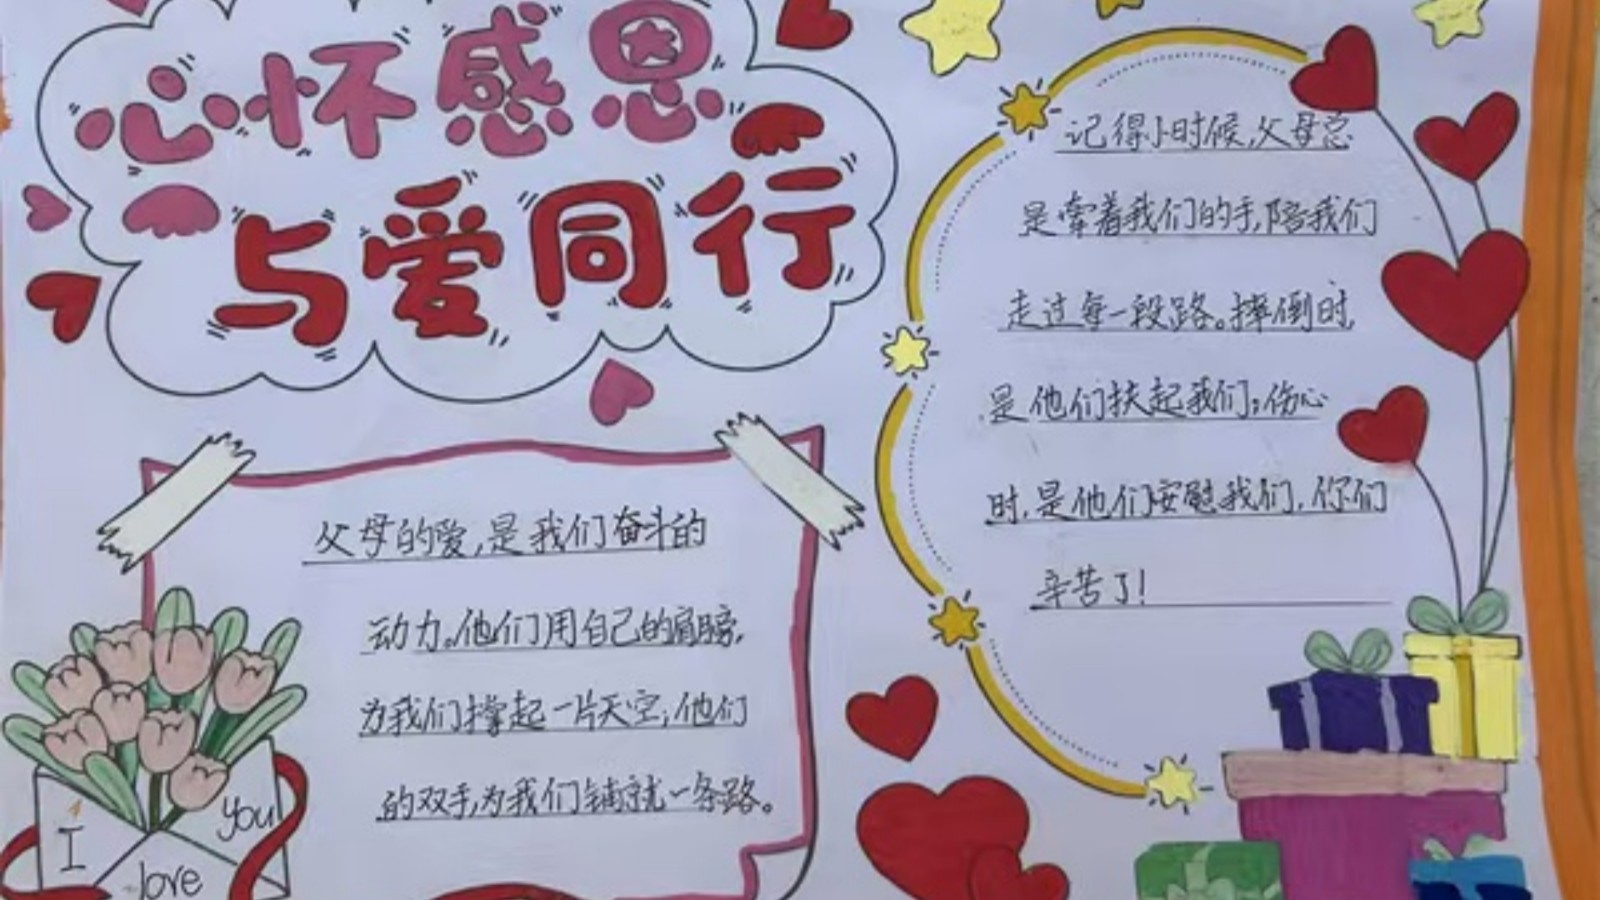 心怀感恩
与爱同行
记得小时候,父母总
是牵着我们的手,陪我们
走过每一段路。摔倒时,
是他们扶起我们;伤心
时,是他们安慰我们,你们
辛苦了!
父母的爱,是我们奋斗的
动力。他们用自己的肩膀,
为我们撑起一片天空;他们
的双手,为我们铺就一条路。
I
love
you